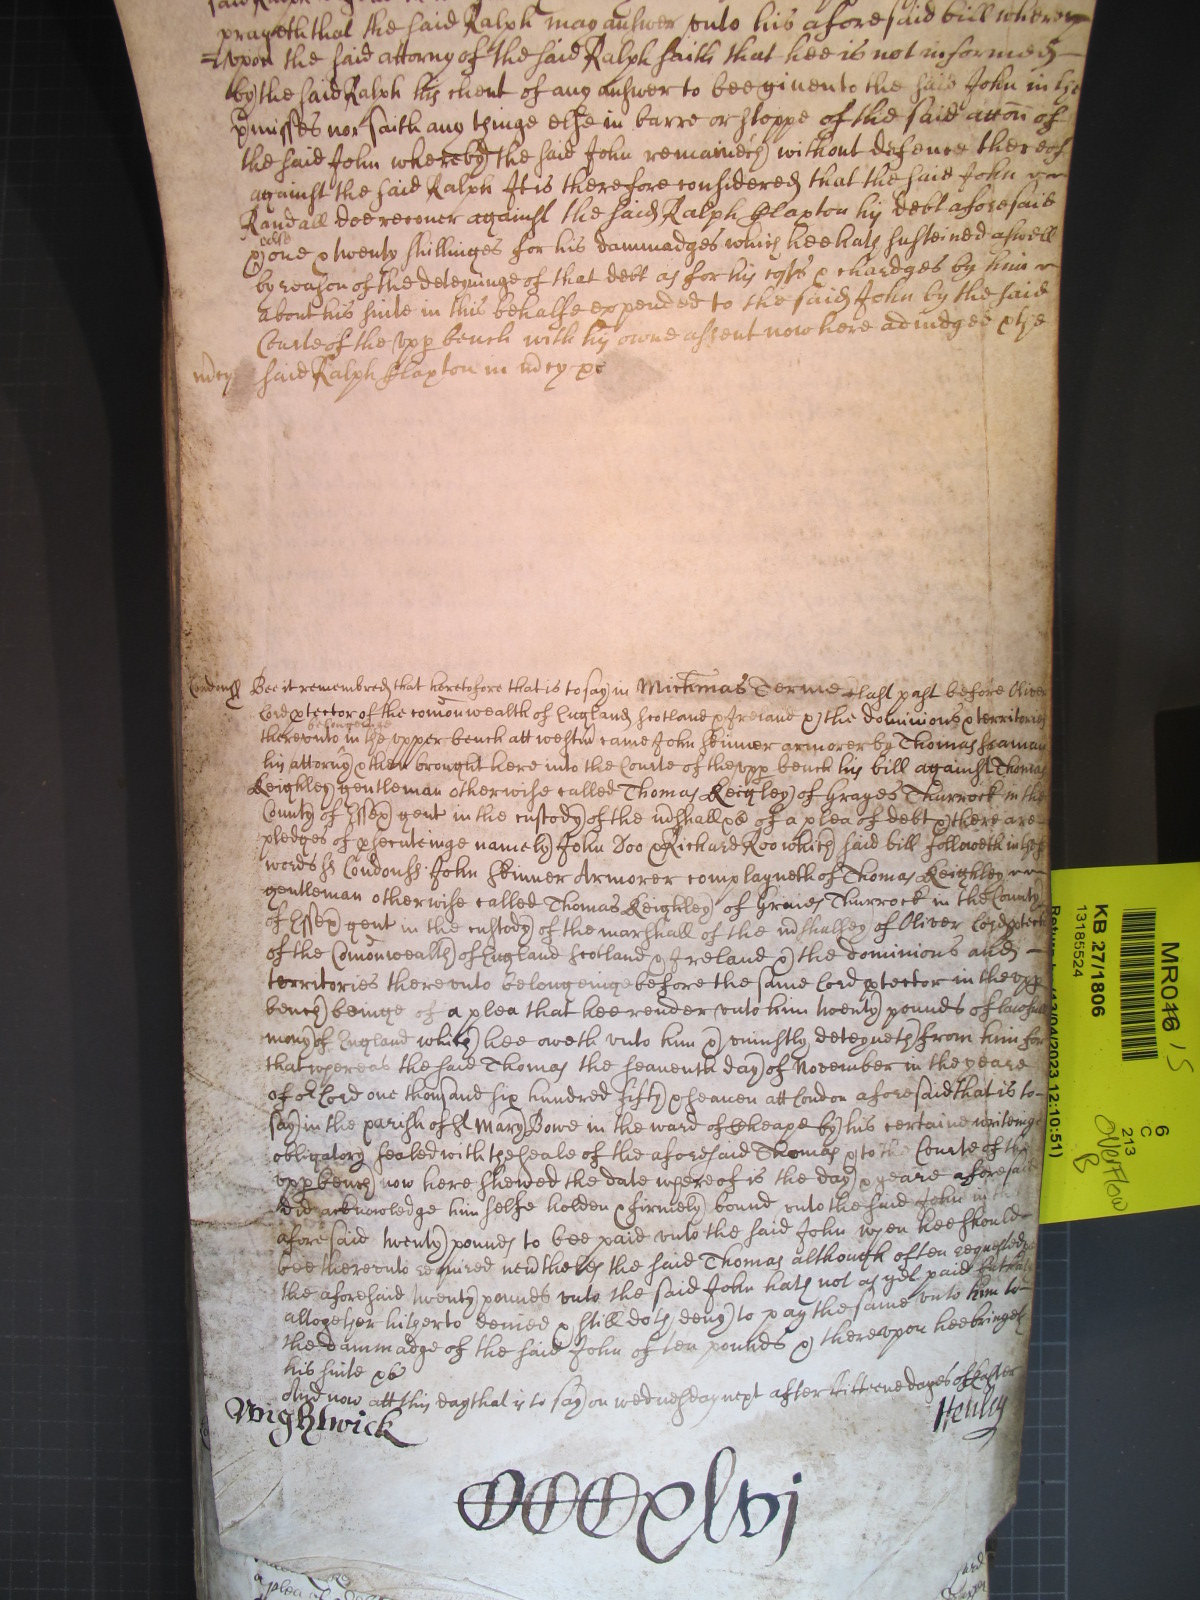 prayeth that the said Ralph may answer unto his aforesaid bill where
=upon the said attorny of the said Ralph saith that hee is not informed
by the said Ralph his client of any answer to bee given to the said John in the
pmisses nor saith any thinge else in barre or stoppe of the said accon of
the said John whereby the said John remaineth without defence thereof
against the said Ralph It is therefore considered that the said John
Randall doe recover against the said Ralph Claxton his debt aforesaid
& one & twenty shillinges for his dammadges which hee hath susteined aswell
by reason of the deteyninge of that debt as for his costs & chardges by him
about his suite in this behalfe expended to the said John by the said
Courte of the upp bench with his owne assent now here adiudged & the
mcy said Ralph Claxton in mcy &c
London ss Bee it remembred that heretofore that is to say in Michmas Terme last past before Oliver
Lord ptector of the comonwealth of England Scotland & Ireland & the dominions & territories
belongeinge
thereunto in the upper bench att Westm came John Skinner armorer by Thomas Seaman
his attorny & then brought here into the Courte of the upp bench his bill against Thomas
Keighley gentleman otherwise called Thomas Keighley of Grayes Thurrock in the
County of Essex gent in the custody of the mshall &c of a plea of debt & there are
pledges of psecuteinge namely John Doo & Richard Roo which said bill followeth in these
words ss London ss John Skinner Armorer complayneth of Thomas Keighley
gentleman otherwise called Thomas Keighley of Graies Thurrock in the County
of Essex gent in the custody of the marshall of the mshalsey of Oliver Lord ptector
of the Comonwealth of England Scotland & Ireland & the dominions and
territories thereunto belongeinge before the same Lord ptector in the upp
bench beinge of a plea that hee render unto him twenty pounds of lawfull
mony of England which hee oweth unto him & uniustly deteyneth from him for
that whereas the said Thomas the seaventh day of November in the yeare
of or Lord one thousand six hundred fifty & seaven att London aforesaid that is to
say in the parish of St Mary Bowe in the ward of Cheape by his certaine writeinge
obligatory sealed with the seale of the aforesaid Thomas & to the Courte of the
upp bench now here shewed the date whereof is the day & yeare aforesaid
did acknowledge him selfe holden & firmely bound unto the said John in the
aforesaid twenty pounds to bee paid unto the said John when hee should
bee thereunto required nevtheles the said Thomas although often requested
the aforesaid twenty pounds unto the said John hath not as yet paid but
altogether hitherto denied & still doth deny to pay the same unto him to
the dammadge of the said John of ten pounds & thereupon hee bringeth
his suite &c
And now att this day that is to say on wednesday next after fifteene dayes of Easter
Wightwick
Henley
CCCxlvj
MR046
15
KB 27/1806
13185524
12:10:51)
6
C
213
OVERFLOW
B